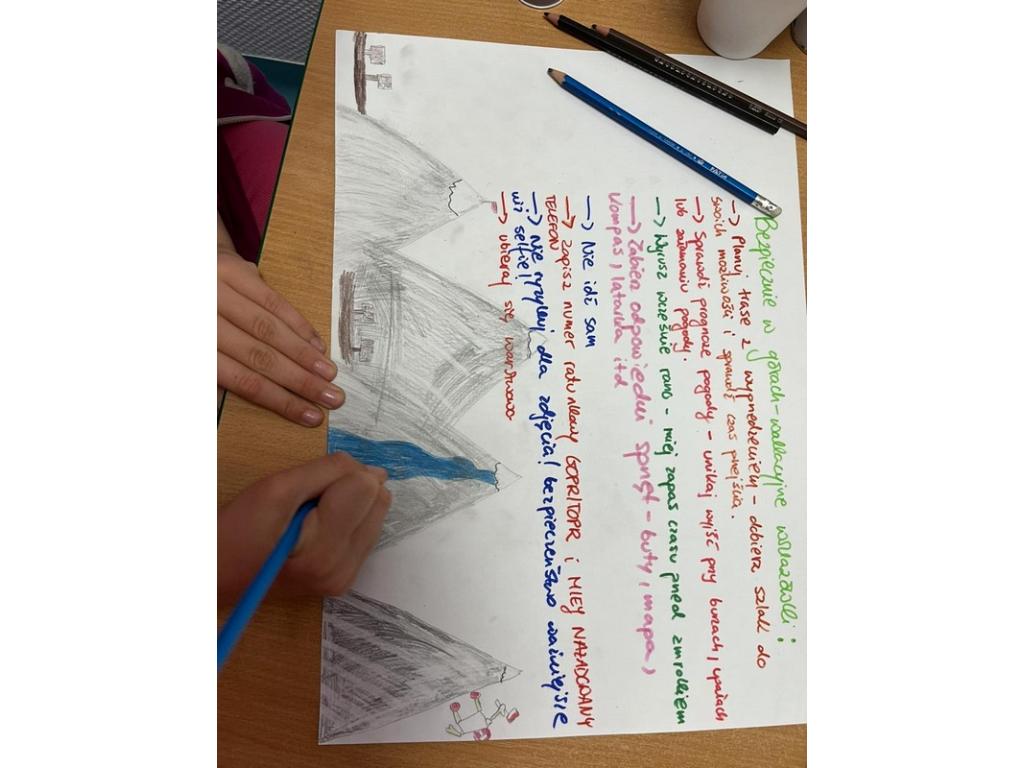 Bezpiecznie w górach - wakacyjne wskazówki:
→ Planuj trase z wyprzedzeniem - dobierz szlak do
swoich możliwości i sprawdź czas przejścia.
→ Sprawdź prognoze pogody - unikaj wyjść przy burzach, upałach
lub załamaniu pogody.
→ Wyrusz wcześnie rano - miej zapas czasu przed zmrokiem
→ Zabierz odpowiedni sprzęt - buty, mapa,
kompas, latarka itd
→ Nie idź sam
→ Zapisz numer ratunkowy GOPR/TOPR i MIEY NAŁADOWANY
TELEFON
→ Nie ryzykuj dla zdjęcia! bezpieczeństwo ważniejsze
niż selfie!
→ ubieraj się warstwowo